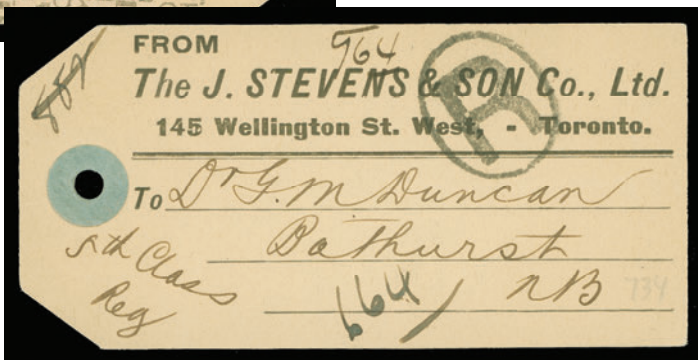 FROM
964
The J. STEVENS & SON Co., Ltd.
R
145 Wellington St. West, - Toronto.
To Dr G. M Duncan
Bathurst
NB
5th Class
Reg
664
734